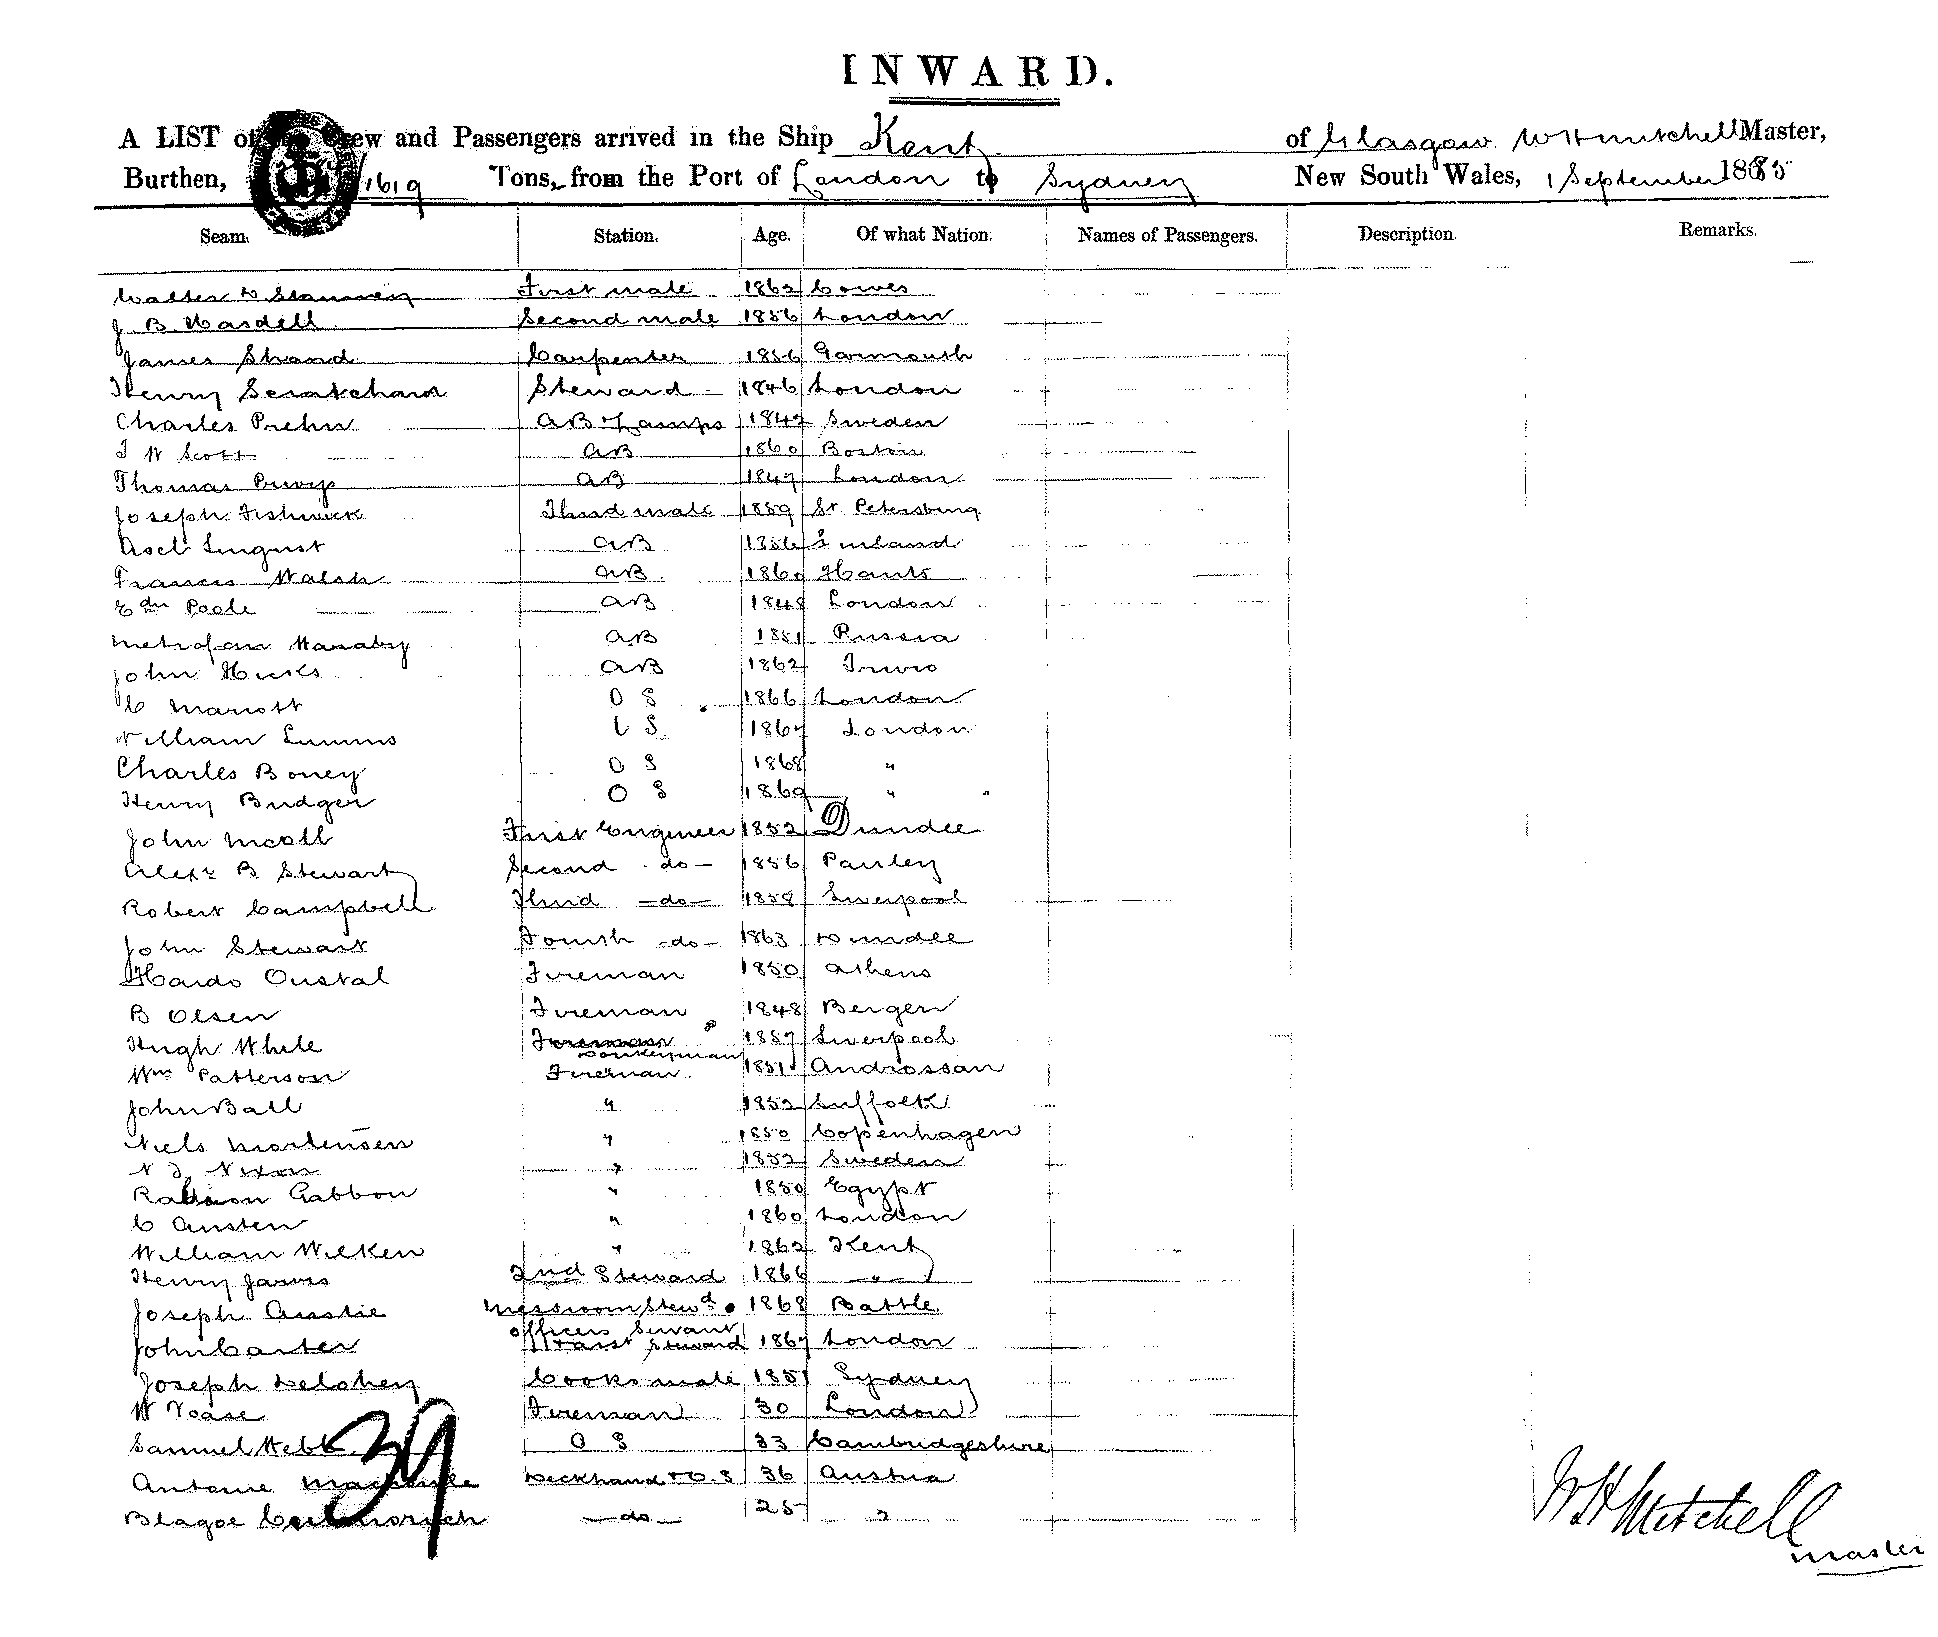 INWARD.
A LIST of Crew and Passengers arrived in the Ship Kent of Glasgow W H Mitchell Master,
Burthen, 1619 Tons, from the Port of London to Sydney New South Wales, 1 September 1885
Seam. Station. Age. Of what Nation. Names of Passengers. Description. Remarks.
Walter D First mate 1862 Cowes
J B Wardell Second mate 1856 London
James Shand Carpenter 1856 Yarmouth
Henry Scratchard Steward 1846 London
Charles Prehn AB & Lamps 1842 Sweden
J W Scott AB 1860 Boston
Thomas AB 1847 London
Joseph Fishwick Third mate 1859 St Petersburg
Axel Lingust AB 1856 Finland
Francis Walsh AB 1860 Hants
Edn Poole AB 1848 London
Metrofan AB 1851 Russia
John Hicks AB 1862 Truro
C Mariott O S 1866 London
William Lummis O S 1867 London
Charles Boney O S 1868 "
Henry Budger O S 1869 "
John McColl First Engineer 1852 Dundee
Alexr B Stewart Second -do- 1856 Paisley
Robert Campbell Third -do- 1858 Liverpool
John Stewart Fourth -do- 1863 Dundee
Hardo Oustal Fireman 1850 Athens
B Olsen Fireman 1848 Bergen
Hugh White Fireman 1857 Liverpool
Donkeyman
Wm Patterson Fireman 1851 Androssan
John Ball " 1852 Suffolk
Niels Mortensen " 1850 Copenhagen
N J Nixon " 1852 Sweden
Gabbon " 1850 Egypt
C Austen " 1860 London
William Wilken " 1862 Kent
Henry Jarvis 2nd Steward 1866 "
Joseph Anstie Messroom Stewd 1868 Battle
Officers Servant
John Carter Steward 1867 London
Joseph Delohey Cooks mate 1851 Sydney
W Vease Fireman 30 London
Samuel Webb O S 33 Cambridgeshire
Antonie Deckhand & O.S 36 Austria
Blagoe -do- 25 "
39
W H Mitchell
Master